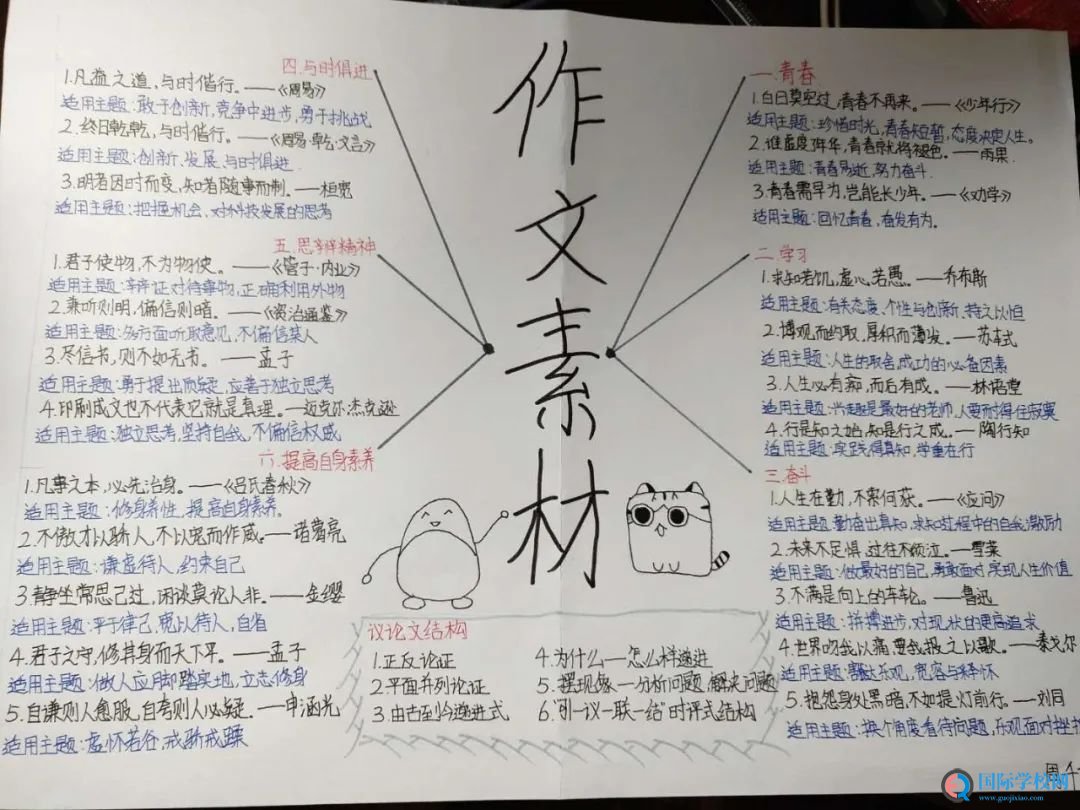 作文素材
一.青春
1.白日莫空过,青春不再来。——《少年行》
适用主题:珍惜时光,青春短暂,态度决定人生。
2.谁虚度年华,青春就将褪色。——雨果.
适用主题:青春易逝,努力奋斗.
3.青春需早为,岂能长少年。——《劝学》
适用主题:回忆青春,奋发有为。
二.学习
1.求知若饥,虚心若愚。——乔布斯
适用主题:有关态度、个性与创新,持之以恒
2.博观而约取,厚积而薄发。——苏轼
适用主题:人生的取舍,成功的必备因素
3.人生必有痴,而后有成。——林语堂
适用主题:兴趣是最好的老师,人要耐得住寂寞
4.行是知之始,知是行之成。——陶行知
适用主题:实践得真知,学重在行
三.奋斗
1.人生在勤,不索何获。——《应问》
适用主题:勤奋出真知,求知过程中的自我激励
2.未来不足惧,过往不须泣。——雪莱
适用主题:做最好的自己,勇敢面对,实现人生价值
3.不满是向上的车轮。——鲁迅
适用主题:拼搏进步,对现状的更高追求
4.世界吻我以痛,要我报之以歌。——泰戈尔
适用主题:豁达乐观,宽容与释怀
5.抱怨身处黑暗,不如提灯前行。——刘同
适用主题:换个角度看待问题,乐观面对挫
四.与时俱进
1.凡益之道,与时偕行。——《周易》
适用主题:敢于创新,竞争中进步,勇于挑战
2.终日乾乾,与时偕行。——《周易·乾·文言》
适用主题:创新、发展、与时俱进
3.明者因时而变,知者随事而制。——桓宽
适用主题:把握机会,对科技发展的思考
五.思辨精神
1.君子使物,不为物使。——《管子·内业》
适用主题:辩证对待事物,正确利用外物
2.兼听则明,偏信则暗。——《资治通鉴》
适用主题:多方面听取意见,不偏信某人
3.尽信书,则不如无书。——孟子
适用主题:勇于提出质疑,应善于独立思考
4.印刷成文也不代表它就是真理。——迈克尔·杰克逊
适用主题:独立思考,坚持自我,不偏信权威
六.提高自身素养
1.凡事之本,必先治身。——《吕氏春秋》
适用主题:修身养性,提高自身素养。
2.不傲才以骄人,不以宠而作威。——诸葛亮
适用主题:谦虚待人,约束自己
3.静坐常思己过,闲谈莫论人非。——金缨
适用主题:严于律己,宽以待人,自省
4.君子之守,修其身而天下平。——孟子
适用主题:做人应脚踏实地,立志修身
5.自谦则人愈服,自夸则人必疑。——申涵光
适用主题:虚怀若谷,戒骄戒躁
议论文结构
1.正反论证
2.平面并列论证
3.由古至今递进式
4.为什么—怎么样递进
5.摆现象—分析问题,解决问题
6."引—议—联—结"时评式结构
周
国际学校网
www.guojixiao.com